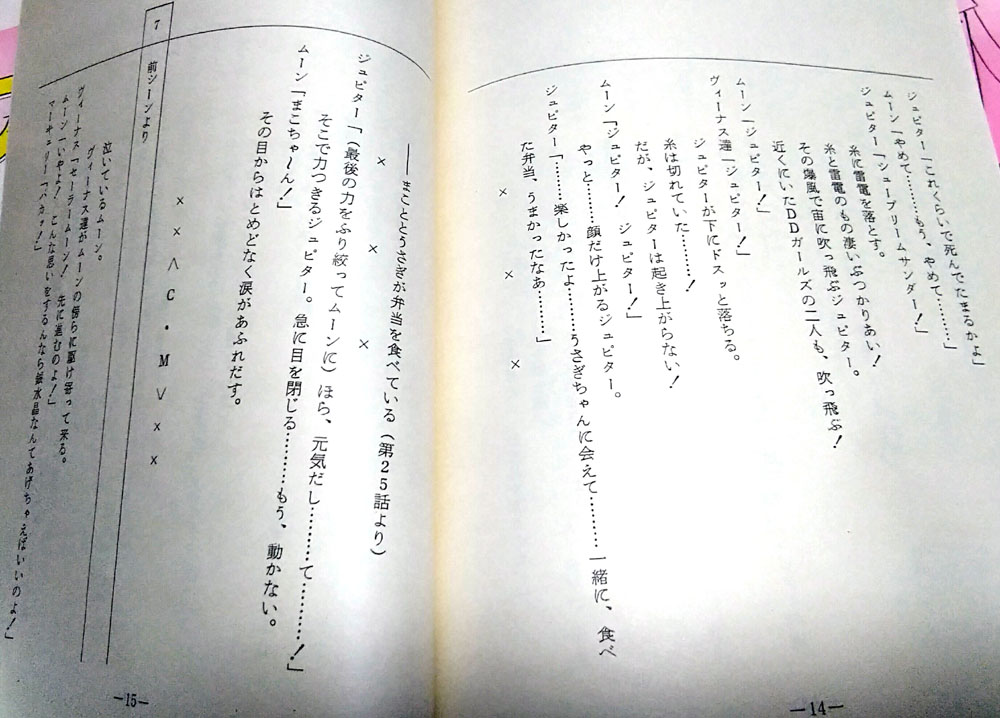 ジュピター「これくらいで死んでたまるかよ」
ムーン「やめて……もう、やめて……」
ジュピター「シュープリームサンダー！」
糸に雷電を落とす。
糸と雷電のもの凄いぶつかりあい！
その爆風で宙に吹っ飛ぶジュピター。
近くにいたDDガールズの二人も、吹っ飛ぶ！
ムーン「ジュピター！」
ヴィーナス達「ジュピター！」
ジュピターが下にドスッと落ちる。
糸は切れていた………！
だが、ジュピターは起き上がらない！
ムーン「ジュピター！　ジュピター！」
やっと……顔だけ上がるジュピター。
ジュピター「………楽しかったよ………うさぎちゃんに会えて…………一緒に、食べ
た弁当、うまかったなあ………」
×　×　×
―14―
――まこととうさぎが弁当を食べている（第25話より）
×　×　×
ジュピター「（最後の力をふり絞ってムーンに）ほら、元気だし…………て…………！」
そこで力つきるジュピター。急に目を閉じる…………もう、動かない。
ムーン「まこちゃ～ん！」
その目からはとめどなく涙があふれだす。
××＜C・M＞××
7　前シーンより
泣いているムーン。
ヴィーナス達がムーンの傍らに駆け寄って来る。
ヴィーナス「セーラームーン！　先に進むのよ！」
ムーン「いやよ！　こんな思いをするんなら銀水晶なんてあげちゃえばいいのよ！」
マーキュリー「バカァ！」
―15―